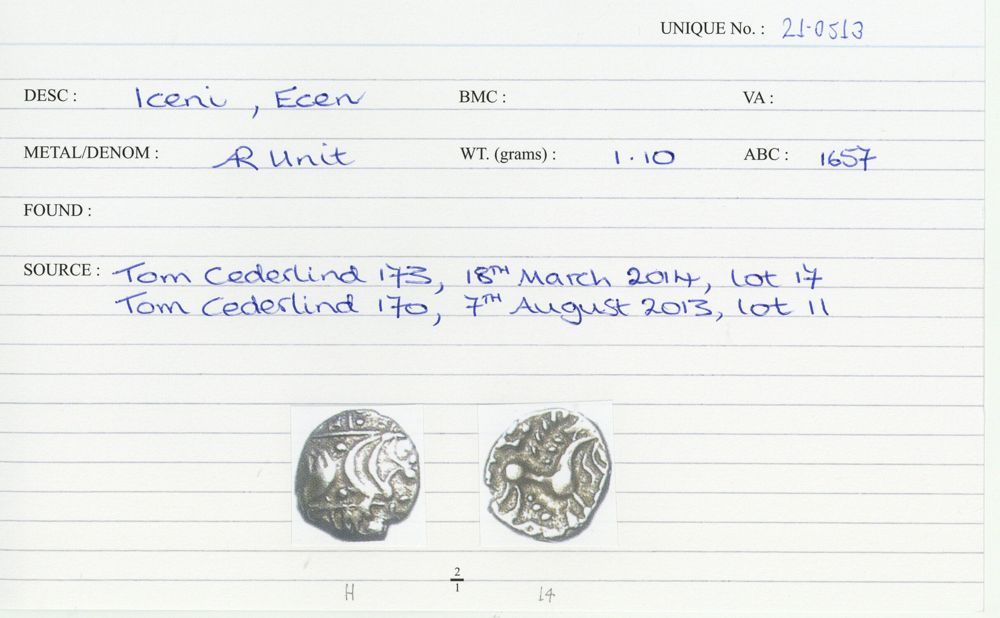 UNIQUE No. : 21-0513
DESC : Iceni, Ecen BMC : VA :
METAL/DENOM : AR Unit WT. (grams) : 1.10 ABC : 1657
FOUND :
SOURCE : Tom Cederlind 173, 18TH March 2014, lot 17
Tom Cederlind 170, 7TH August 2013, lot 11
2
H 1 14